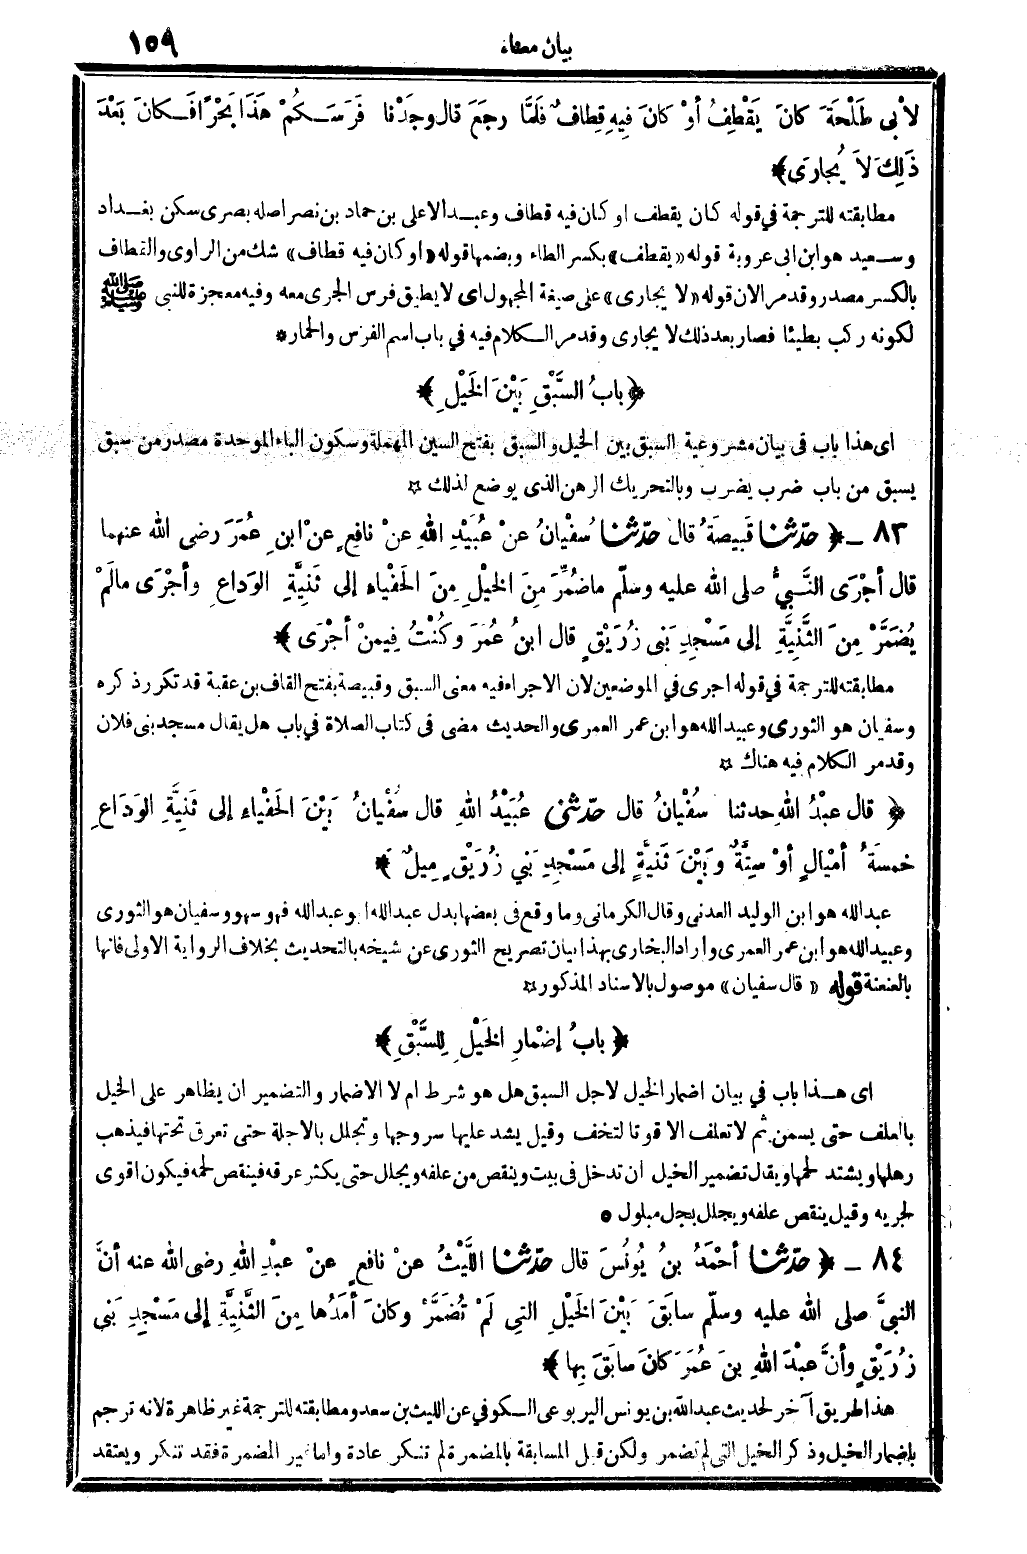 بيان معناه ١٥٩
لِأَبِي طَلْحَةَ كانَ يَقْطِفُ أوْ كانَ فِيهِ قِطافٌ فَلَمَّا رجَعَ قال وجَدْنا فَرَسَكُمْ هَذَا بَحْرًا فَكانَ بَعْدَ
ذَلِكَ لاَ يُجارَى﴾
مطابقته للترجمة في قوله كان يقطف او كان فيه قطاف وعبد الاعلى بن حماد بن نصر اصله بصرى سكن بغداد
وسعيد هو ابن ابى عروبة قوله «يقطف» بكسر الطاء وبضمها قوله «او كان فيه قطاف» شك من الراوى والقطاف
بالكسر مصدر وقد مر الان قوله «لا يجارى» على صيغة المجهول اى لا يطيق فرس الجرى معه وفيه معجزة للنبى ﷺ
لكونه ركب بطيئا فصار بعد ذلك لا يجارى وقد مر الكلام فيه في باب اسم الفرس والحمار *
﴿بابُ السَّبْقِ بَيْنَ الخَيْلِ﴾
اى هذا باب فى بيان مشروعية السبق بين الخيل والسبق بفتح السين المهملة وسكون الباء الموحدة مصدر من سبق
يسبق من باب ضرب يضرب وبالتحريك الرهن الذى يوضع لذلك ☆
٨٣ ـ ﴿حدّثنا قَبِيصَةُ قال حدّثنا سُفْيانُ عنْ عُبَيْدِ اللهِ عنْ نافِعٍ عنْ ابنِ عُمَرَ رضى الله عنهما
قال أجْرَى النَّبيُّ صلى الله عليه وسلّم ماضُمِّرَ مِنَ الخَيْلِ مِنَ الحَفْياءِ إلى ثَنِيَّةِ الوَداعِ وأجْرَى مالَمْ
يُضَمَّرْ مِنَ الثَّنِيَّةِ إلى مَسْجِدِ بَنى زُرَيْقٍ قال ابنُ عُمَرَ وكُنْتُ فِيمنْ أجْرَى﴾
مطابقته للترجمة في قوله اجرى في الموضعين لان الاجراء فيه معنى السبق وقبيصة بفتح القاف بن عقبة قد تكرر ذكره
وسفيان هو الثورى وعبيد الله هو ابن عمر العمرى والحديث مضى فى كتاب الصلاة في باب هل يقال مسجد بنى فلان
وقد مر الكلام فيه هناك ☆
﴿قال عبْدُ اللهِ حدثنا سُفْيانُ قال حدّثنى عُبَيْدُ اللهِ قال سُفْيانُ بَيْنَ الحَفْياءِ إلى ثَنِيَّةِ الوَدَاعِ
خمسَةُ أمْيالٍ أوْ سِتَّةٌ وبَيْنَ ثَنيةٍ إلى مَسْجِدِ بَنِي زُرَيْقٍ مِيلٌ﴾
عبد الله هو ابن الوليد العدنى وقال الكرمانى وما وقع فى بعضها بدل عبد الله ابو عبد الله فهو سهو وسفيان هو الثورى
وعبيد الله هو ابن عمر العمرى واراد البخارى بهذا بيان تصريح الثورى عن شيخه بالتحديث بخلاف الرواية الاولى فانها
بالعنعنة قوله «قال سفيان» موصول بالاسناد المذكور ☆
﴿بابُ إضْمارِ الخَيْلِ لِلسَّبْقِ﴾
اى هذا باب في بيان اضمار الخيل لاجل السبق هل هو شرط ام لا الاضمار والتضمير ان يظاهر على الخيل
بالعلف حتى يسمن ثم لا تعلف الا قوتا لتخف وقيل يشد عليها سروجها وتجلل بالاجلة حتى تعرق تحتها فيذهب
رهلها ويشتد لحمها ويقال تضمير الخيل ان تدخل فى بيت وينقص من علفه ويجلل حتى يكثر عرقه فينقص لحمه فيكون اقوى
لجريه وقيل ينقص علفه ويجلل بجل مبلول *
٨٤ ـ ﴿حدّثنا أحْمَدُ بنُ يُونُسَ قال حدّثنا اللَّيْثُ عنْ نافعٍ عنْ عبْدِ اللهِ رضى الله عنه أنَّ
النبىَّ صلى الله عليه وسلّم سابَقَ بَيْنَ الخَيْلِ التِي لَمْ تُضَمَّرْ وكانَ أمَدُها مِنَ الثَّنِيَّةِ إلى مَسْجِدِ بَنِي
زُرَيْقٍ وأنَّ عبْدَ اللهِ بنَ عُمَرَ كانَ سابَقَ بِها﴾
هذا طريق آخر لحديث عبد الله بن يونس اليربوعى الكوفي عن الليث بن سعد ومطابقته للترجمة غير ظاهرة لانه ترجم
باضمار الخيل وذكر الخيل التى لم تضمر ولكن قبل المسابقة بالمضمرة لم تنكر عادة واما غير المضمرة فقد تنكر ويعتقد